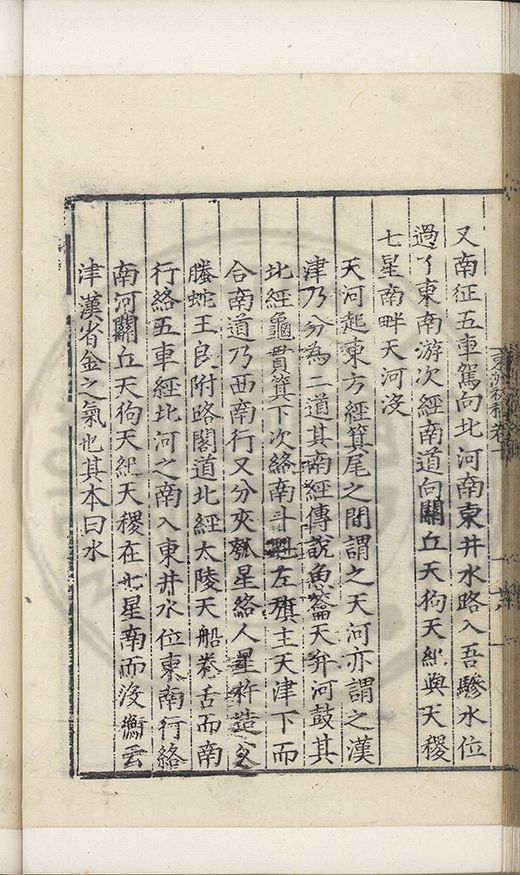 又南征五車駕向北河南東井水路入吾驂水位
過了東南游次經南道向闕丘天狗天紀與天稷
七星南畔天河沒
天河起東方經箕尾之間謂之天河亦謂之漢
津乃分為二道其南經傳說魚籥天弁河鼓其
北經龜貫箕下次絡南斗魁左旗主天津下而
合南道乃西南行又分夾瓠星絡人星杵造父
螣蛇王良附路閣道北經太陵天船卷舌而南
行絡五車經北河之南入東井水位東南行絡
南河闕丘天狗天紀天稷在七星南而沒衡云
津漢省金之氣也其本曰水